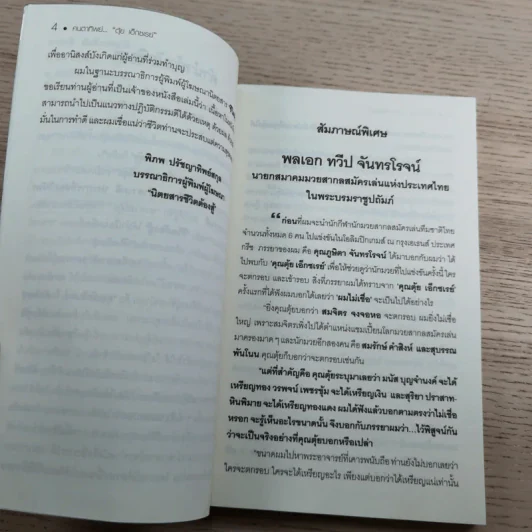 4 • คนตาทิพย์... "ตุ้ย เอ็กซเรย์"
เพื่ออานิสงส์บังเกิดแก่ผู้อ่านที่ร่วมทำบุญ
ผมในฐานะบรรณาธิการผู้พิมพ์ผู้โฆษณานิตยสาร
ขอเรียนท่านผู้อ่านที่เป็นเจ้าของหนังสือเล่มนี้ว่า
สามารถนำไปเป็นแนวทางปฏิบัติกรรมดีได้ด้วยเหตุ ด้วยผล
มั่นในการทำดี และผมเชื่อแน่ว่าชีวิตท่านจะประสบแต่ความสุข
พิภพ ปรัชญาทิพย์สกุล
บรรณาธิการผู้พิมพ์ผู้โฆษณา
"นิตยสารชีวิตต้องสู้"
สัมภาษณ์พิเศษ
พลเอก ทวีป จันทรโรจน์
นายกสมาคมมวยสากลสมัครเล่นแห่งประเทศไทย
ในพระบรมราชูปถัมภ์
"ก่อนที่ผมจะนำนักกีฬานักมวยสากลสมัครเล่นทีมชาติไทย
จำนวนทั้งหมด 8 คน ไปแข่งขันในโอลิมปิกเกมส์ ณ กรุงเอเธนส์ ประเทศ
กรีซ ภรรยาของผม คือ คุณภูษิตา จันทรโรจน์ ได้มาบอกกับผมว่า ได้
ไปพบกับ 'คุณตุ้ย เอ็กซเรย์' เพื่อให้ช่วยดูว่านักมวยที่ไปแข่งขันครั้งนี้ ใคร
จะตกรอบ และเข้ารอบ สิ่งที่ภรรยาผมได้ทราบจาก 'คุณตุ้ย เอ็กซเรย์'
ครั้งแรกที่ได้ฟังผมบอกได้เลยว่า 'ผมไม่เชื่อ' จะเป็นไปได้อย่างไร
"ยิ่งคุณตุ้ยบอกว่า สมจิตร จงจอหอ จะตกรอบ ผมยิ่งไม่เชื่อ
ใหญ่ เพราะสมจิตรเพิ่งไปได้ตำแหน่งแชมเปี้ยนโลกมวยสากลสมัครเล่น
มาครองมาด ๆ และนักมวยอีกสองคน คือ สมรักษ์ คำสิงห์ และสุบรรณ
พันโนน คุณตุ้ยก็บอกว่าจะตกรอบเช่นกัน
"แต่ที่สำคัญคือ คุณตุ้ยระบุมาเลยว่า มนัส บุญจำนงค์ จะได้
เหรียญทอง วรพจน์ เพชรขุ้ม จะได้เหรียญเงิน และสุริยา ปราสาท-
หินพิมาย จะได้เหรียญทองแดง ผมได้ฟังแล้วบอกตามตรงว่าไม่เชื่อ
หรอก จะรู้เห็นอะไรขนาดนั้น จึงบอกกับภรรยาผมว่า...ไว้พิสูจน์กัน
ว่าจะเป็นจริงอย่างที่คุณตุ้ยบอกหรือเปล่า
"ขนาดผมไปหาพระอาจารย์ที่เคารพนับถือ ท่านยังไม่บอกเลยว่า
ใครจะตกรอบ ใครจะได้เหรียญอะไร เพียงแต่บอกว่าได้เหรียญแน่เท่านั้น